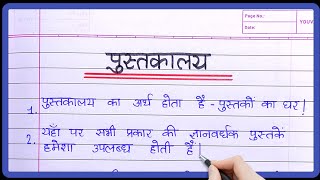 Page No.:
Date:
YOUV
पुस्तकालय
1. पुस्तकालय का अर्थ होता है - पुस्तकों का घर!
2. यहाँ पर सभी प्रकार की ज्ञानवर्धक पुस्तकें
हमेशा उपलब्ध होती हैं।